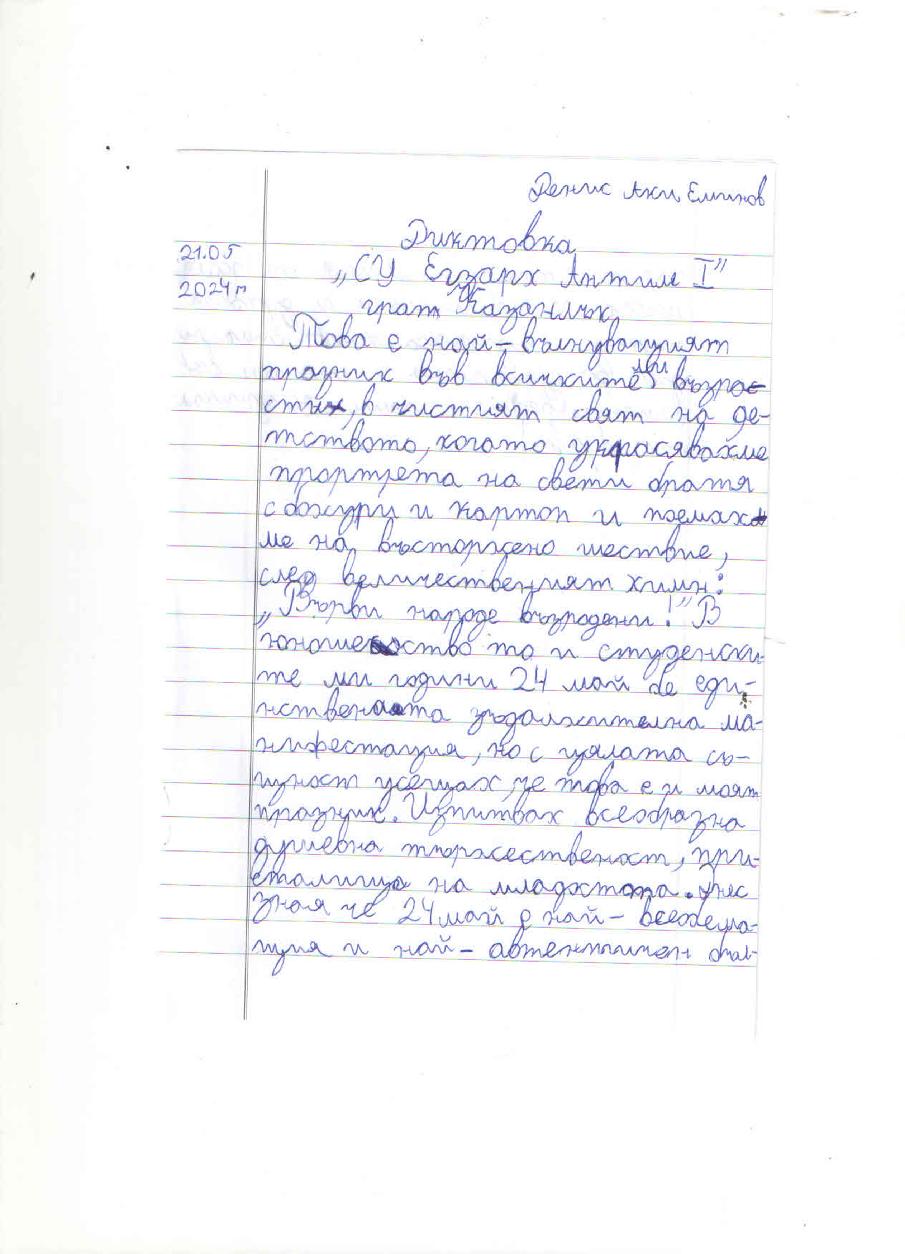 Денис Аки Еминов
Диктовка
21.05
2024г
„СУ Егзарх Антим I"
грат Казанлък
Това е най-вълнуващият
празник във всичките ми възра-
сти, в чистият свят на де-
тството, когато украсявахме
портрета на свети братя
с божури и картон и поемах
ме на възторжено шествие,
след величественият химн:
„Върви народе възродени!" В
юноше ство то и студенски-
те ми години 24 май бе еди-
нствената задължителна ма-
нифестация, но с цялата съ-
щност усещах, че това е и моят
празник. Изпитвах всеобразна
душевна тържественост, при-
сталища на младостта. Днес
зная че 24 май е най-всеобема-
щия и най-автентичен бъл-